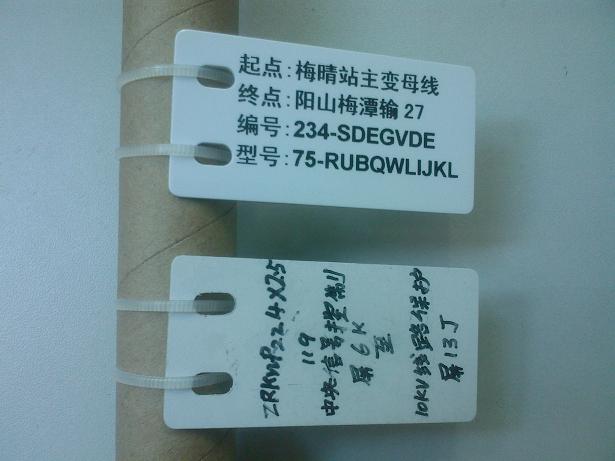 起点:梅晴站主变母线
终点:阳山梅潭输27
编号:234-SDEGVDE
型号:75-RUBQWLIJKL
ZRKVVP22 4X2.5
119
中央信号控制
屏6K
至
10KV线路保护
屏13J